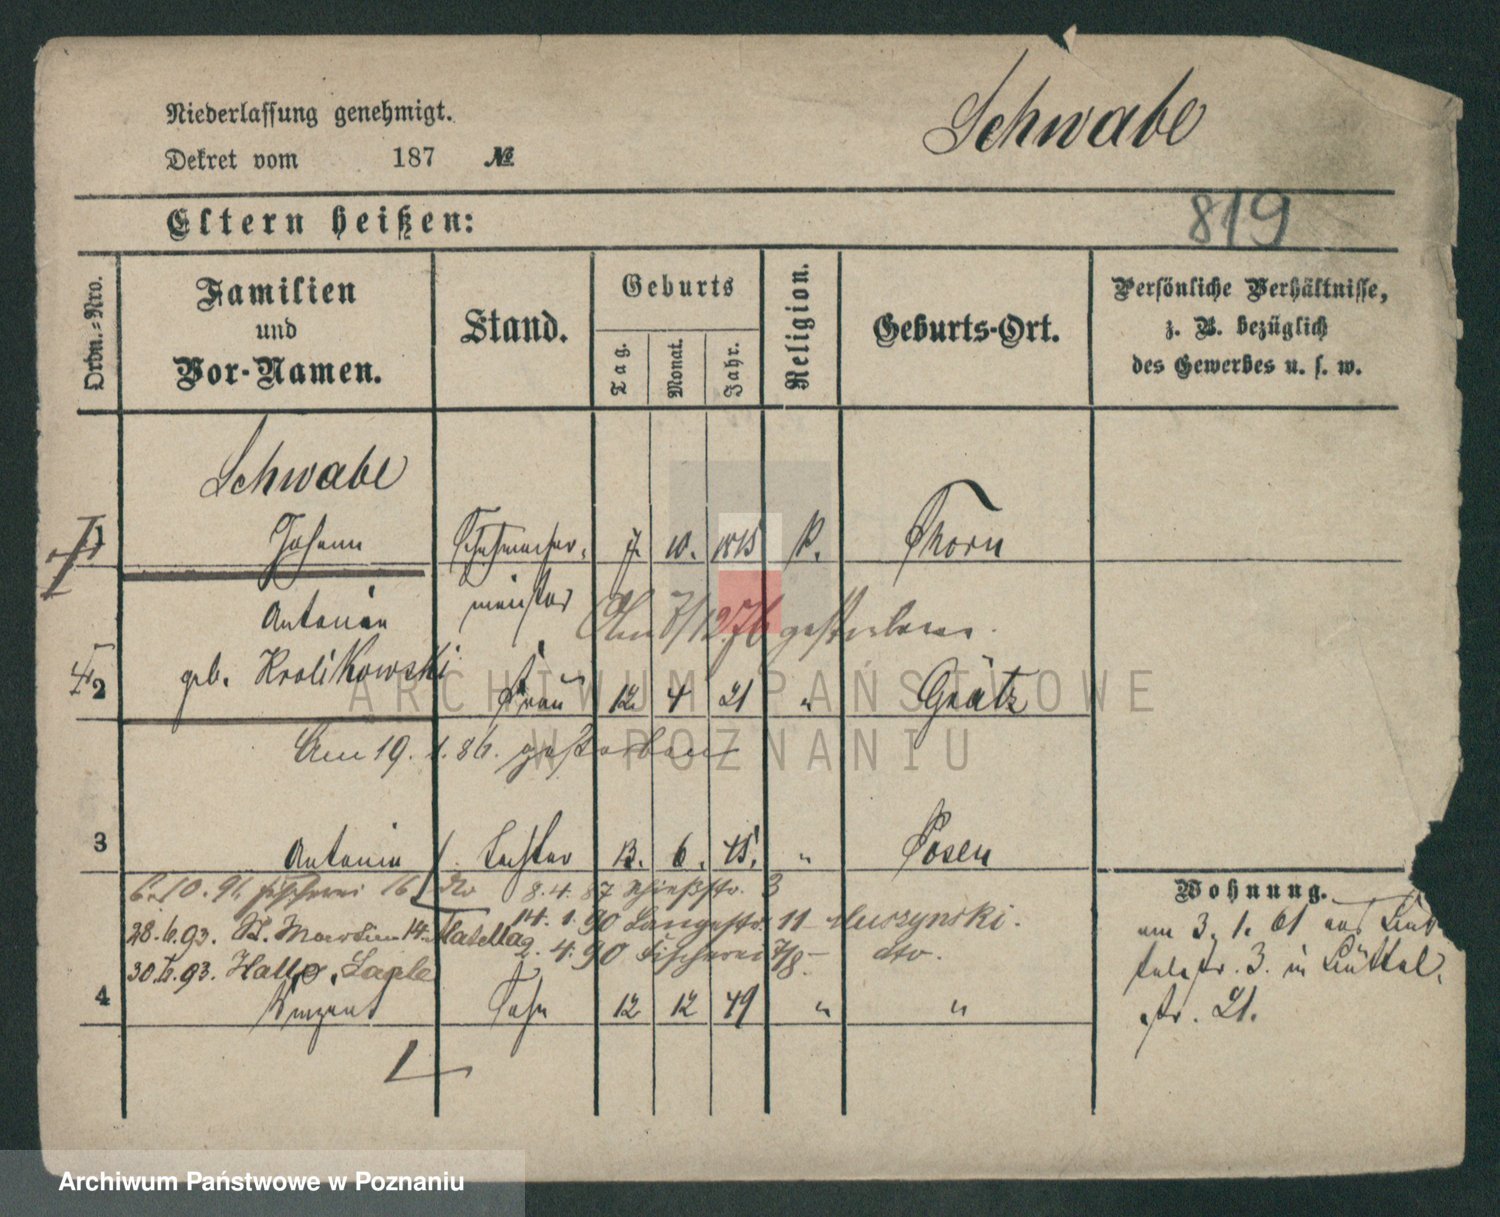 Niederlassung genehmigt.
Dekret vom 187 №
Schwabe
Eltern heißen:
819
Ordn.-Nro.
Familien
und
Vor-Namen.
Stand.
Geburts
Tag.
Monat.
Jahr.
Religion.
Geburts-Ort.
Persönliche Verhältnisse,
z. B. bezüglich
des Gewerbes u. s. w.
Schwabe
1 Johann Schuhmacher- 7. 10. 1815 K. Thorn
meister
Am 7/12.76 gestorben.
Antonie
geb. Krolikowski
2 Frau 12 4 21 " Grätz
Am 19. 1. 86. gestorben
3 Antonie Tochter 13. 6. 45. " Posen
6. 10. 91. Fischerei 16 8. 4. 87 Schießstr. 3
28. 6. 93. St. Martin 14. 14. 1. 90 Langestr. 11 Muszynski.
2. 4. 90 Fischerei 7/8. dto.
30. 6. 93.
4 Vinzent Sohn 12 12 49 " "
Wohnung.
am 3. 1. 61 aus
3. in Büttel-
str. 21.
ARCHIWUM PAŃSTWOWE
W POZNANIU
Archiwum Państwowe w Poznaniu